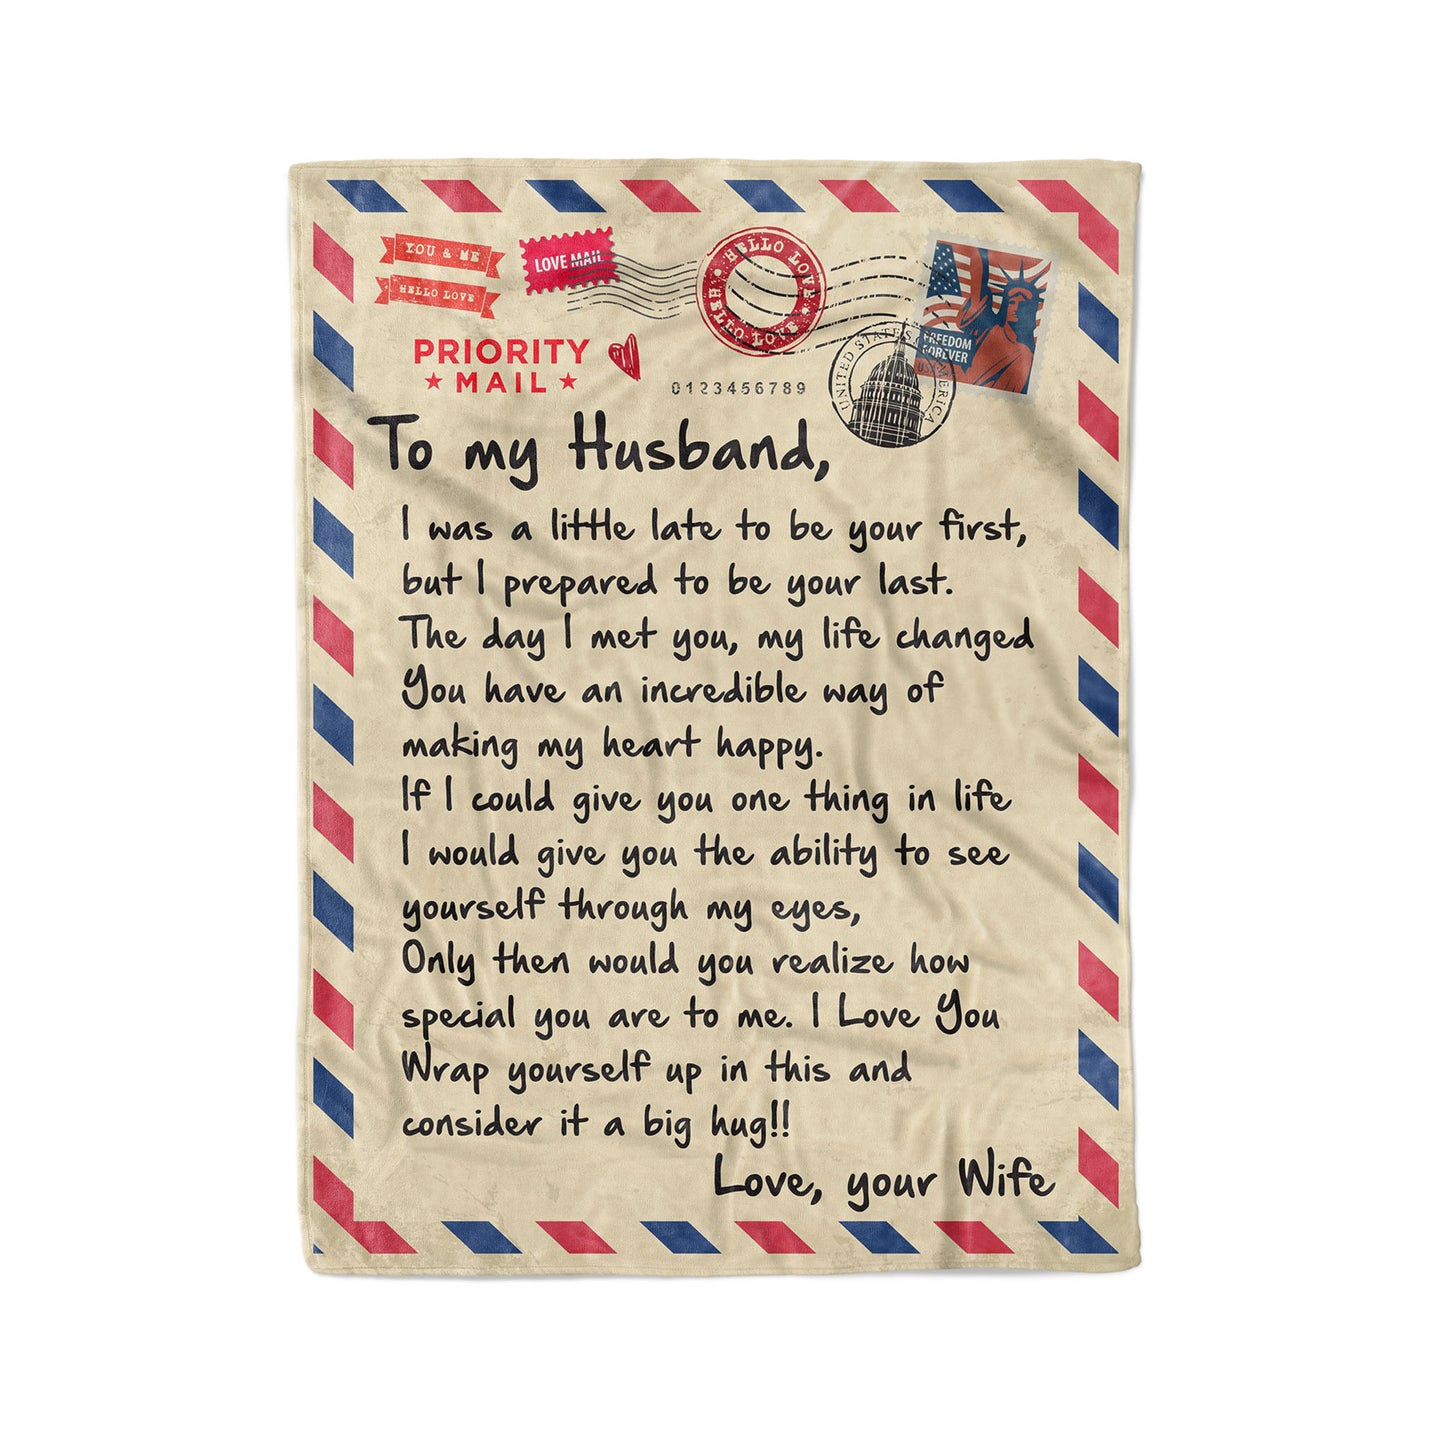 YOU & ME
HELLO LOVE
LOVE MAIL
HELLO LOVE • HELLO LOVE •
FREEDOM
FOREVER
USA
UNITED STATES AMERICA
PRIORITY
★ MAIL ★
0123456789
To my Husband,
I was a little late to be your first,
but I prepared to be your last.
The day I met you, my life changed
You have an incredible way of
making my heart happy.
If I could give you one thing in life
I would give you the ability to see
yourself through my eyes,
Only then would you realize how
special you are to me. I Love You
Wrap yourself up in this and
consider it a big hug!!
Love, your Wife